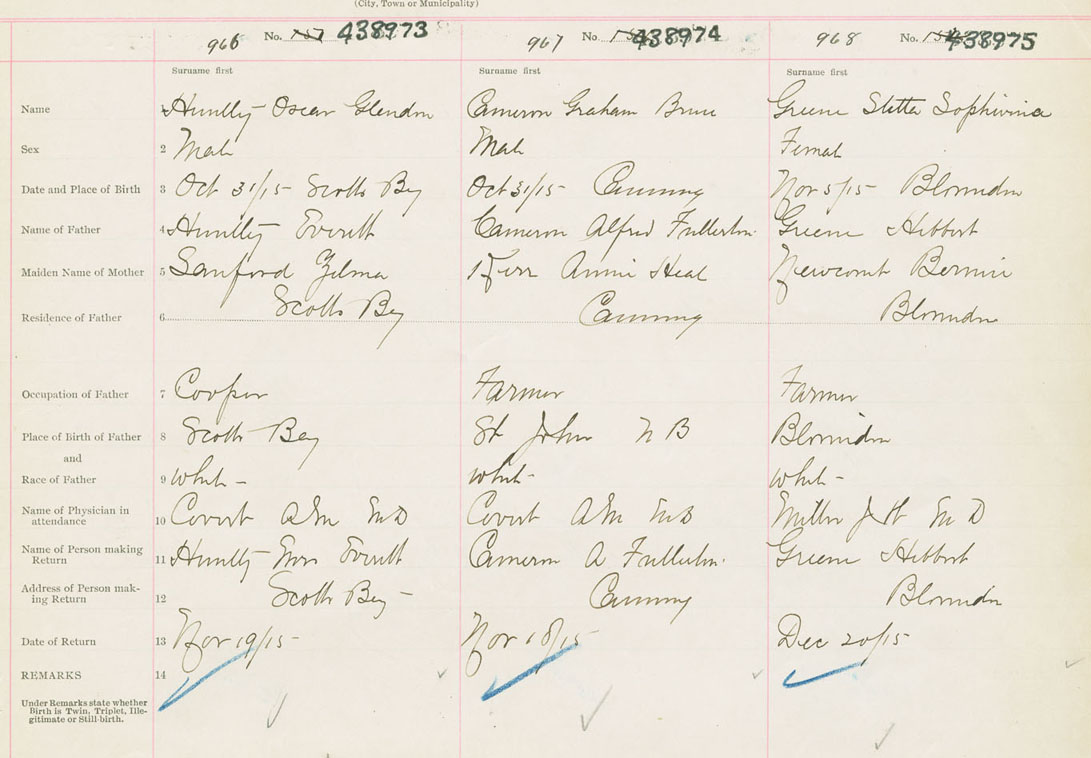 (City, Town or Municipality)
966 No. 438973 967 No. 438974 968 No. 438975
Surname first Surname first Surname first
Name 1 Huntley Oscar Glendon Cameron Graham Bruce Greene Stella Sophivina
Sex 2 Male Male Female
Date and Place of Birth 3 Oct 31/15 Scotts Bay Oct 31/15 Canning Nov 5/15 Blomidon
Name of Father 4 Huntley Everett Cameron Alfred Fullerton Greene Hibbert
Maiden Name of Mother 5 Sanford Zelma Annie Newcomb Bernice
Residence of Father 6 Scotts Bay Canning Blomidon
Occupation of Father 7 Cooper Farmer Farmer
Place of Birth of Father 8 Scotts Bay St John N B Blomidon
and
Race of Father 9 White White White
Name of Physician in
attendance 10 Covert A M M D Covert A M M D Miller J H M D
Name of Person making
Return 11 Huntley Mrs Everett Cameron A Fullerton Greene Hibbert
Address of Person mak-
ing Return 12 Scotts Bay Canning Blomidon
Date of Return 13 Nov 19/15 Nov 18/15 Dec 20/15
REMARKS 14
Under Remarks state whether
Birth is Twin, Triplet, Ille-
gitimate or Still-birth.